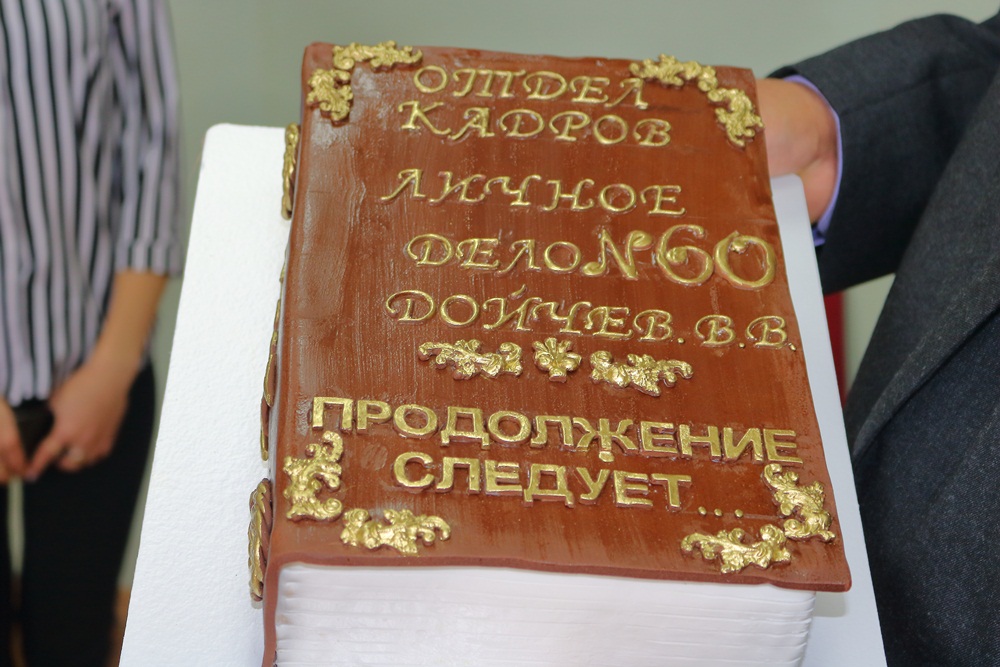 ОТДЕЛ
КАДРОВ
ЛИЧНОЕ
ДЕЛО №60
ДОЙЧЕВ.В.В.
ПРОДОЛЖЕНИЕ
СЛЕДУЕТ...